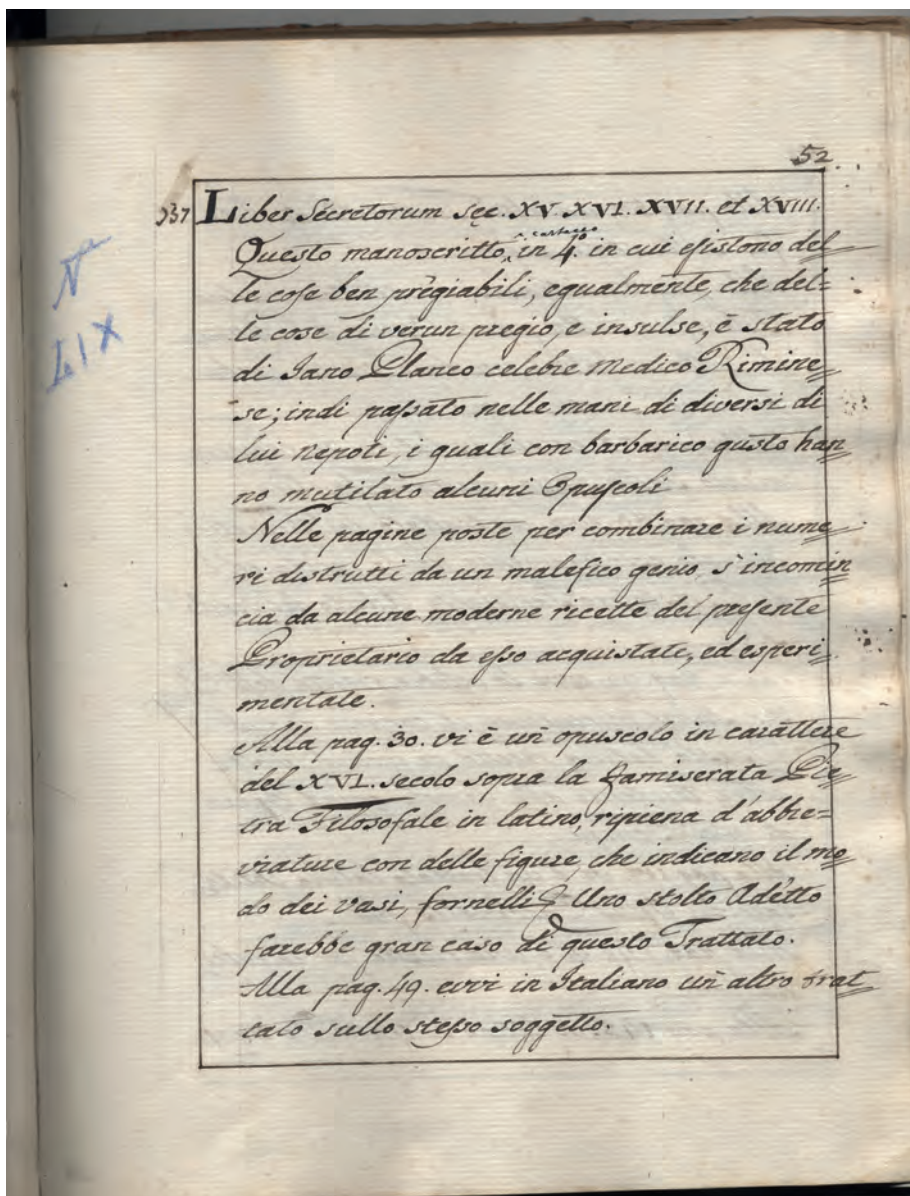 52
237 Liber Secretorum sec. XV. XVI. XVII. et XVIII.
Questo manoscritto, cartaceo in 4.to in cui esistono del=
le cose ben pregiabili, egualmente, che del=
le cose di verun pregio, e insulse, è stato
di Iano Planco celebre Medico Rimine=
se; indi passato nelle mani di diversi di
lui nepoti, i quali con barbarico gusto han=
no mutilato alcuni Opuscoli
Nelle pagine poste per combinare i nume=
ri distrutti da un malefico genio, s'incomin=
cia da alcune moderne ricette del presente
Proprietario da esso acquistate, ed esperi=
mentate.
Alla pag. 30. vi è un opuscolo in carattere
del XVI. secolo sopra la famiserata Pie=
tra Filosofale in latino, ripiena d'abbre=
viature con delle figure, che indicano il mo=
do dei vasi, fornelli Uno stolto Adetto
farebbe gran caso di questo Trattato.
Alla pag. 49. evvi in Italiano un altro trat=
tato sullo stesso soggetto.
N
LIX